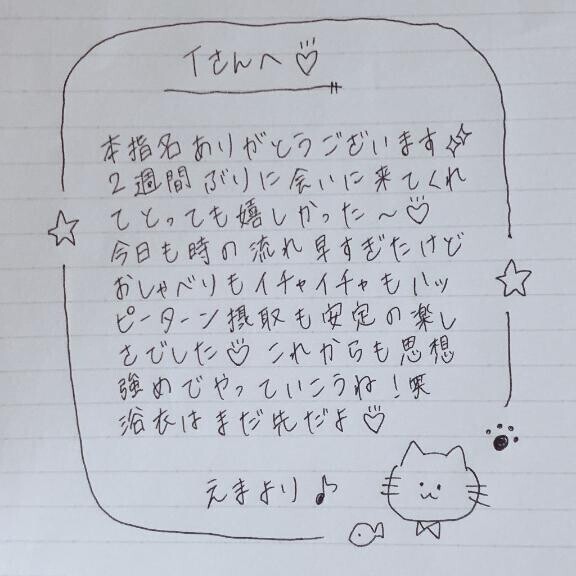 Tさんへ♡
本指名ありがとうございます✨
2週間ぶりに会いに来てくれ
てとっても嬉しかった〜♡
今日も時の流れ早すぎたけど
おしゃべりもイチャイチャもハッ
ピーターン摂取も安定の楽し
さでした♡ これからも思想
強めでやっていこうね!笑
浴衣はまだ先だよ♡
えまより♪